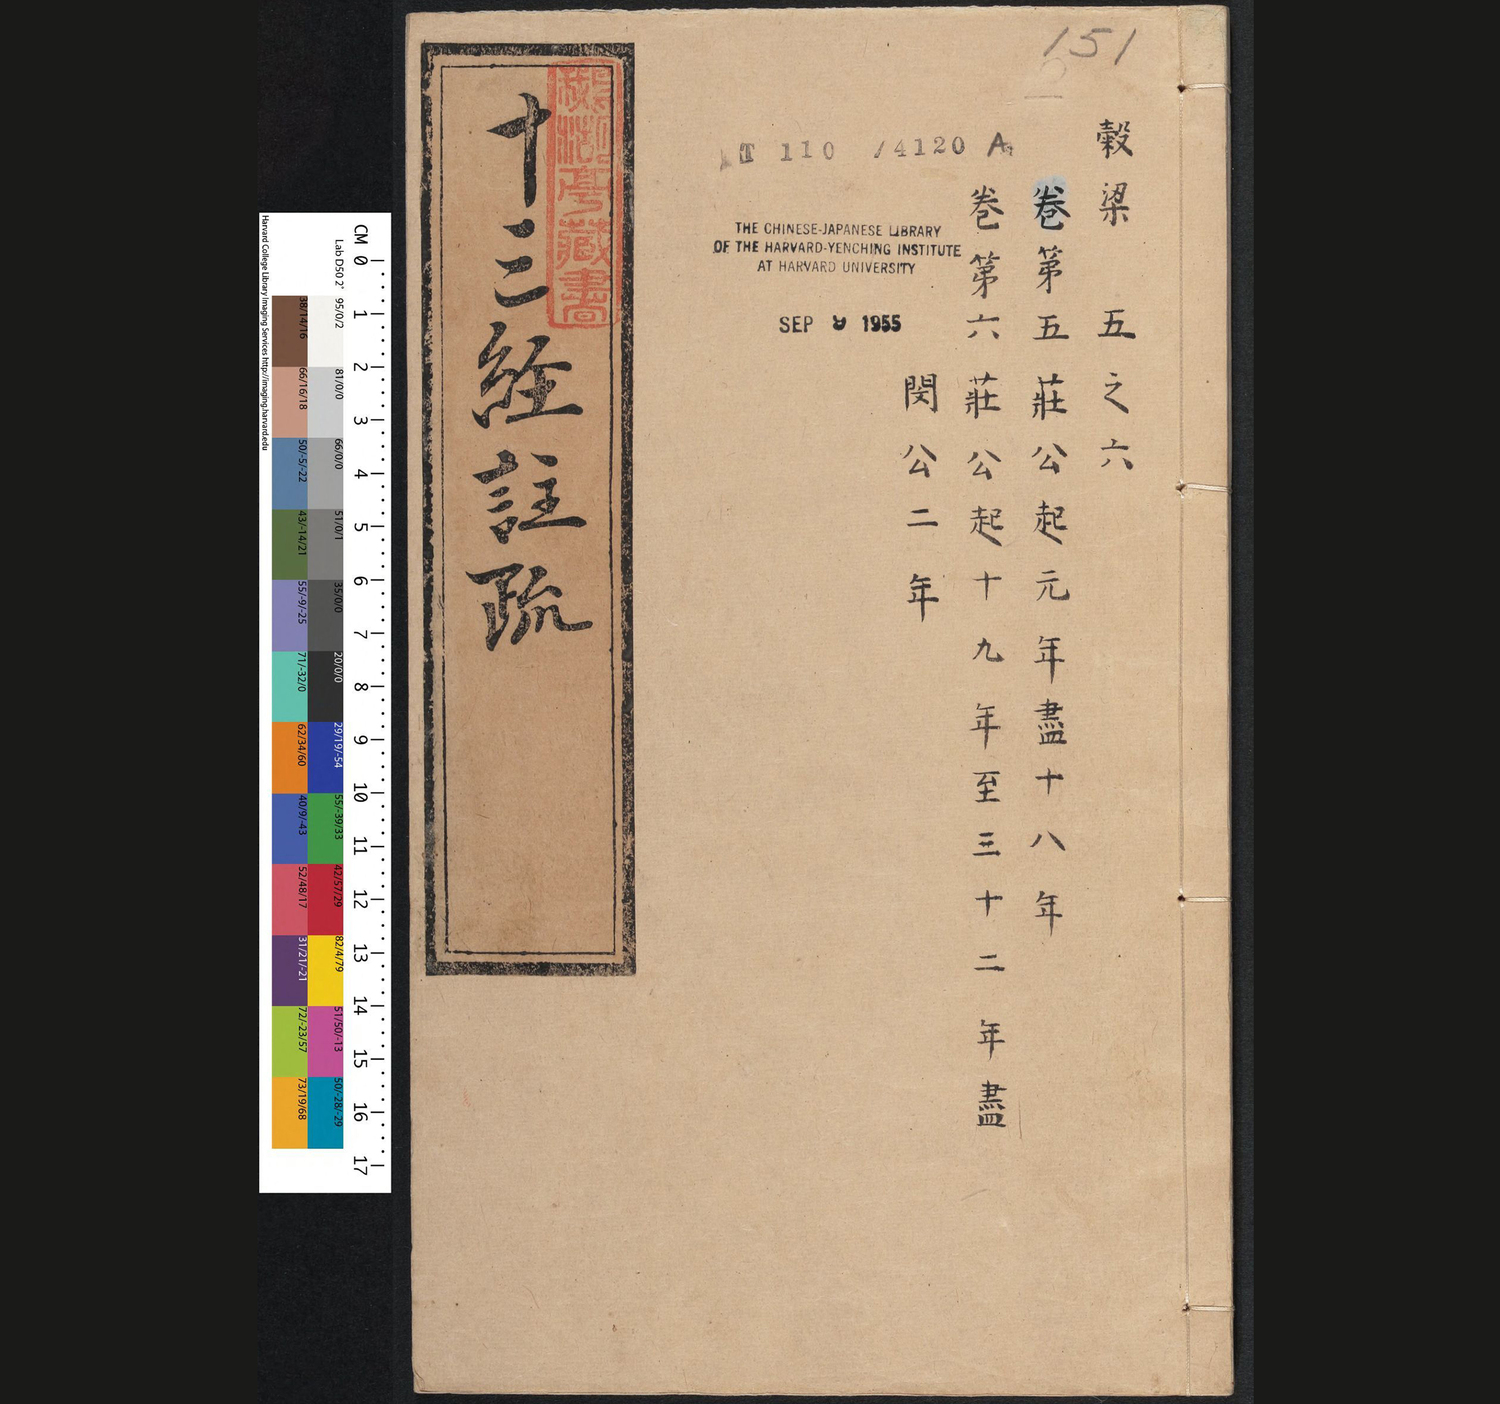 151
穀梁 五之六
卷第五 莊公起元年盡十八年
卷第六 莊公起十九年至三十二年盡
閔公二年
T 110 /4120 A
THE CHINESE-JAPANESE LIBRARY
OF THE HARVARD-YENCHING INSTITUTE
AT HARVARD UNIVERSITY
SEP 9 1955
十三経註疏
亭藏書
CM 0 1 2 3 4 5 6 7 8 9 10 11 12 13 14 15 16 17
Lab D50.2˚ 95/0/2 81/0/0 66/0/0 51/0/1 35/0/0 20/0/0 29/19/-54 55/-39/33 42/57/29 82/4/79 51/50/-13 50/-28/-29
38/14/16 66/16/18 50/-5/-22 43/-14/21 55/-9/-25 71/-32/0 62/34/60 40/9/-43 52/48/17 31/21/-21 72/-23/57 73/19/68
Harvard College Library Imaging Services http://imaging.harvard.edu